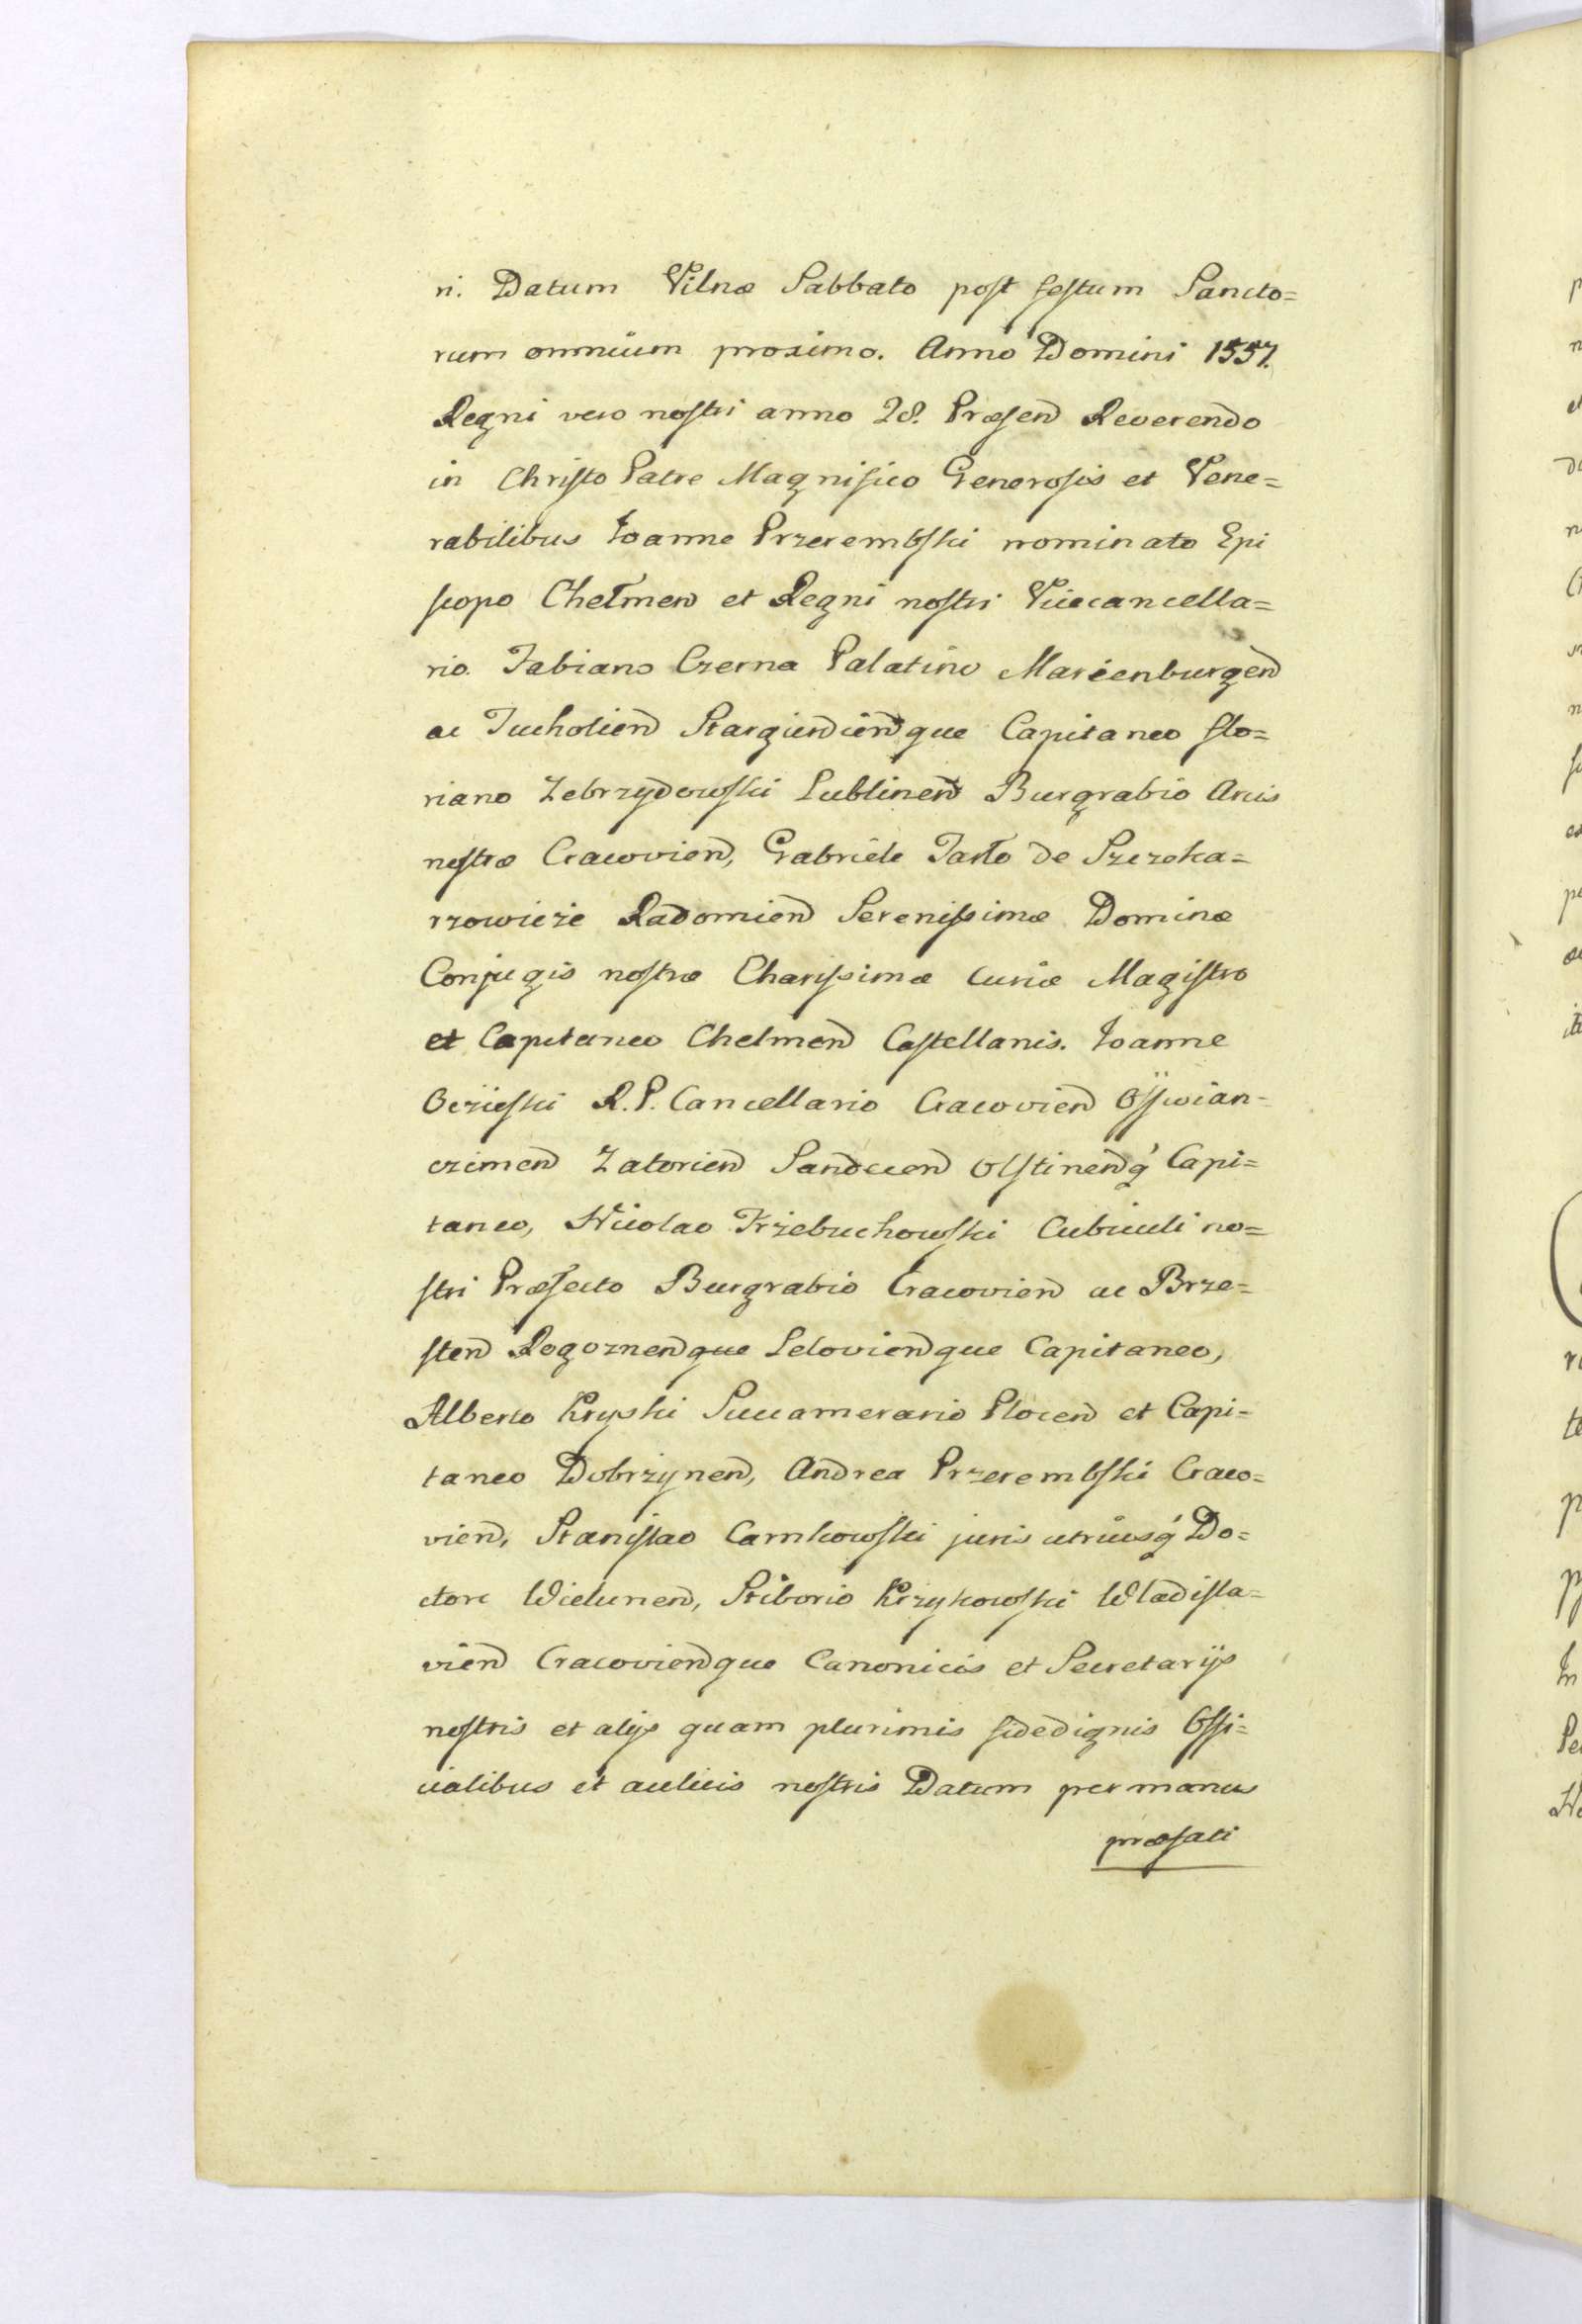 n. Datum Vilnæ Sabbato post festum Sancto=
rum omnium proximo. Anno Domini 1557.
Regni vero nostri anno 28. Præsen Reverendo
in Christo Patre Magnifico Generosis et Vene=
rabilibus Ioanne Przerembski nominato Epi
scopo Chełmen et Regni nostri Vicecancella=
rio. Fabiano Czerna Palatino Marienburgen
ac Tucholien Stargiendienque Capitaneo Flo=
riano Zebrzydowski Lublinen Burgrabio Arcis
nostræ Cracovien, Gabriele Tarło de Szczeka=
rzowicze Radomien Serenissimæ Dominæ
Conjugis nostræ Charissimæ Curiæ Magistro
et Capitaneo Chelmen Castellanis. Ioanne
Oczieski R. P. Cancellario Cracovien Osswian=
czimen Zatorien Sandecen Olstinenq́ Capi=
taneo, Nicolao Trzebuchowski Cubiculi no=
stri Præfecto Burgrabio Cracovien ac Brze=
sten Rogoznenque Lelovienque Capitaneo,
Alberto Kryski Succamerario Plocen et Capi=
taneo Dobrzynen, Andrea Przerembski Craco=
vien, Stanislao Carnkowski juris utriusq́ Do=
ctore Wielunen, Stiborio Krzykowski Wladisla=
vien Cracovienque Canonicis et Secretarijs
nostris et alijs quam plurimis fidedignis Offi=
cialibus et aulicis nostris Datum per manus
præfati